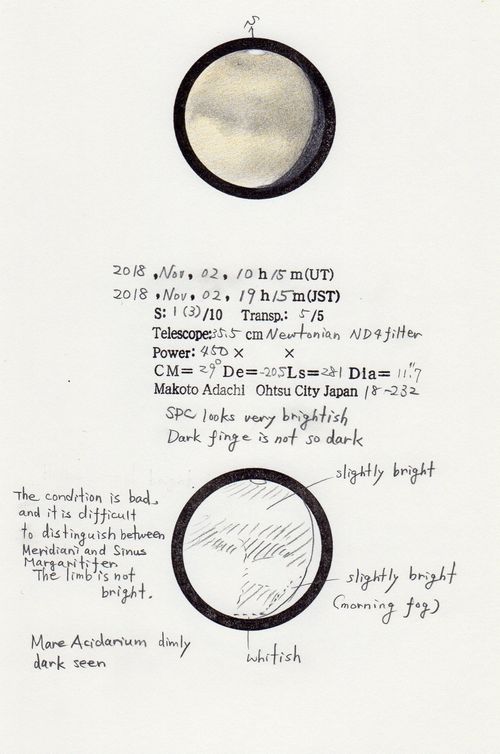 S
2018, Nov, 02, 10 h 15 m (UT)
2018, Nov, 02, 19 h 15 m (JST)
S: 1 (3)/10 Transp.: 5/5
Telescope: 35.5 cm Newtonian ND4 filter
Power: 450 × ×
CM= 29° De= -20.5 Ls= 281 Dia= 11".7
Makoto Adachi Ohtsu City Japan 18-232
SPC looks very brightish
Dark finge is not so dark
slightly bright
The condition is bad,
and it is difficult
to distinguish between
Meridiani and Sinus
Margaritifer
The limb is not
bright.
slightly bright
(morning fog)
Mare Acidarium dimly
dark seen
whitish